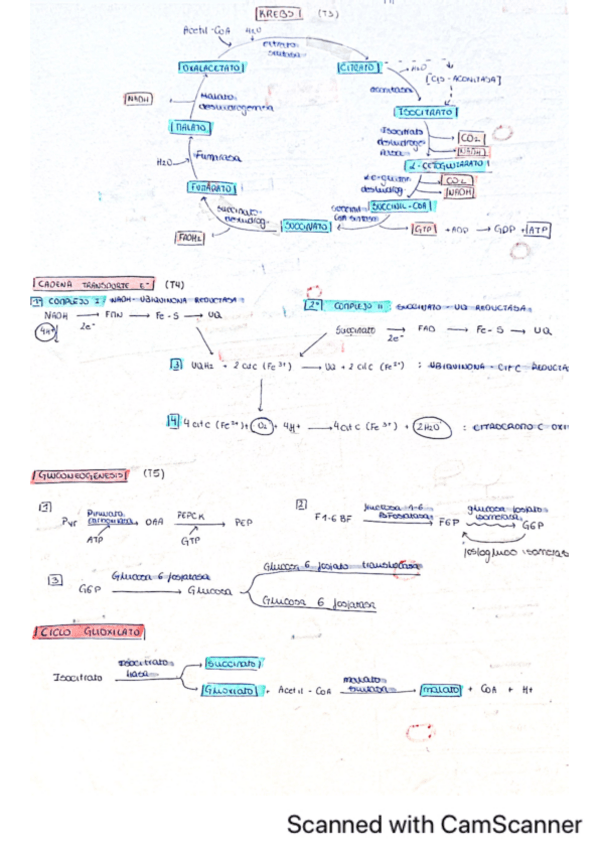 KREBS (T3)
Acetil-CoA H2O
citrato sintasa
OXALACETATO
CITRATO
H2O
[CIS-ACONITASA]
aconitasa
NADH
Malato deshidrogenasa
ISOCITRATO
Isocitrato deshidrogenasa
CO2
NADH
MALATO
H2O
Fumarasa
α-CETOGLUTARATO
CO2
NADH
FUMARATO
SUCCINIL-CoA
succinato deshidrog.
SUCCINATO
FADH2
GTP + ADP → GDP + ATP
CADENA TRANSPORTE E- (T4)
1º COMPLEJO I: NADH-UBIQUINONA REDUCTASA:
2º COMPLEJO II: SUCCINATO-UQ REDUCTASA:
NADH → FMN → Fe-S → UQ
4H+ 2e-
Succinato → FAD → Fe-S → UQ
2e-
3 UQH2 + 2 citc (Fe3+) → UQ + 2 citc (Fe2+) : UBIQUINONA-CIT C REDUCTA
4 4 citc (Fe2+) + O2 + 4H+ → 4 citc (Fe3+) + 2H2O : CITOCROMO C OXI
GLUCONEOGENESIS (T5)
1 Pyr Piruvato carboxilasa OAA PEPCK PEP
ATP GTP
2 F1-6BF fructosa 1-6 Bifosfatasa F6P glucosa fosfato isomerasa G6P
fosfogluco isomerasa
3 G6P Glucosa 6 fosfatasa Glucosa
Glucosa 6 fosfato translocasa
Glucosa 6 fosfatasa
CICLO GLIOXILATO
Isocitrato Isocitrato liasa
Succinato
Glioxilato + Acetil-CoA malato sintasa malato + CoA + H+
Scanned with CamScanner